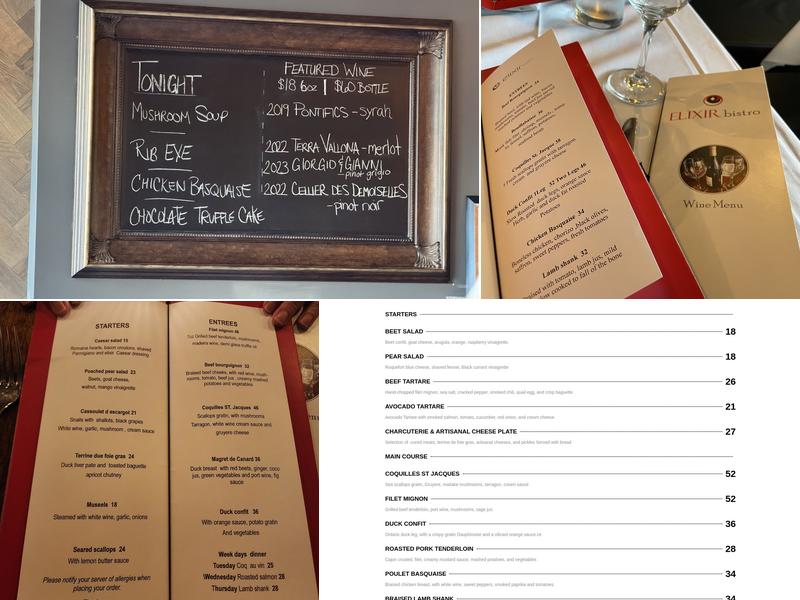 TONIGHT
MUSHROOM SOUP
RIB EYE
CHICKEN BASQUAISE
CHOCOLATE TRUFFLE CAKE
FEATURED WINE
$18 6oz | $60 BOTTLE
2019 PONTIFICS - syrah
2022 TERRA VALLONA - merlot
2023 GIORGIO & GIANNI
- pinot grigio
2022 CELLIER DES DEMOISELLES
- pinot noir
ENTREES
Coquilles St. Jacque
Duck Confit 1Leg 32 Two Legs 46
Slow Roasted duck legs, orange sauce
Herb, garlic and duck fat roasted
Potatoes
Chicken Basquaise 34
Boneless chicken, chorizo, black olives,
saffron, sweet peppers, fresh tomatoes
Lamb shank 32
with tomato, lamb jus, mild
cooked to fall of the bone
ELIXIR bistro
Wine Menu
STARTERS
Caesar salad 15
Romaine hearts, bacon croutons, shaved
Parmigiano and elixir Caesar dressing
Poached pear salad 23
Beets, goat cheese,
walnut, mango vinaigrette
Cassoulet d escargot 21
Snails with shallots, black grapes
White wine, garlic, mushroom, cream sauce
Terrine due foie gras 24
Duck liver pate and toasted baguette
apricot chutney
Mussels 18
Steamed with white wine, garlic, onions
Seared scallops 24
With lemon butter sauce
Please notify your server of allergies when
placing your order.
ENTREES
Filet mignon 46
7oz Grilled beef tenderloin, mushrooms,
madeira wine, demi glace truffle oil
Beef bourguignon 32
Braised beef cheeks, with red wine, mush-
rooms, tomato, beef jus, creamy mashed
potatoes and vegetables
Coquilles ST. Jacques 46
Scallops gratin, with mushrooms
Tarragon, white wine cream sauce and
gruyers cheese
Magret de Canard 36
Duck breast with red beets, ginger, coco
jus, green vegetables and port wine, fig
sauce
Duck confit 36
With orange sauce, potato gratin
And vegetables
Week days dinner
Tuesday Coq au vin 25
Wednesday Roasted salmon 28
Thursday Lamb shank 28
STARTERS
BEET SALAD 18
Beet confit, goat cheese, arugula, orange, raspberry vinaigrette
PEAR SALAD 18
Roquefort blue cheese, shaved fennel, Black currant vinaigrette
BEEF TARTARE 26
Hand-chopped filet mignon, sea salt, cracked pepper, smoked chili, quail egg, and crisp baguette
AVOCADO TARTARE 21
Avocado Tartare with smoked salmon, tomato, cucumber, red onion, and cream cheese
CHARCUTERIE & ARTISANAL CHEESE PLATE 27
Selection of cured meats, terrine de foie gras, artisanal cheeses, and pickles Served with bread
MAIN COURSE
COQUILLES ST JACQUES 52
Sea scallops gratin, Gruyere, maitake mushrooms, tarragon, cream sauce
FILET MIGNON 52
Grilled beef tenderloin, port wine, mushrooms, sage jus
DUCK CONFIT 36
Ontario duck leg, with a crispy gratin Dauphinoise and a vibrant orange sauce
ROASTED PORK TENDERLOIN 28
Cajun crusted, filet, creamy mustard sauce, mashed potatoes, and vegetables
POULET BASQUAISE 34
Braised chicken breast, with white wine, sweet peppers, smoked paprika and tomatoes
BRAISED LAMB SHANK 34